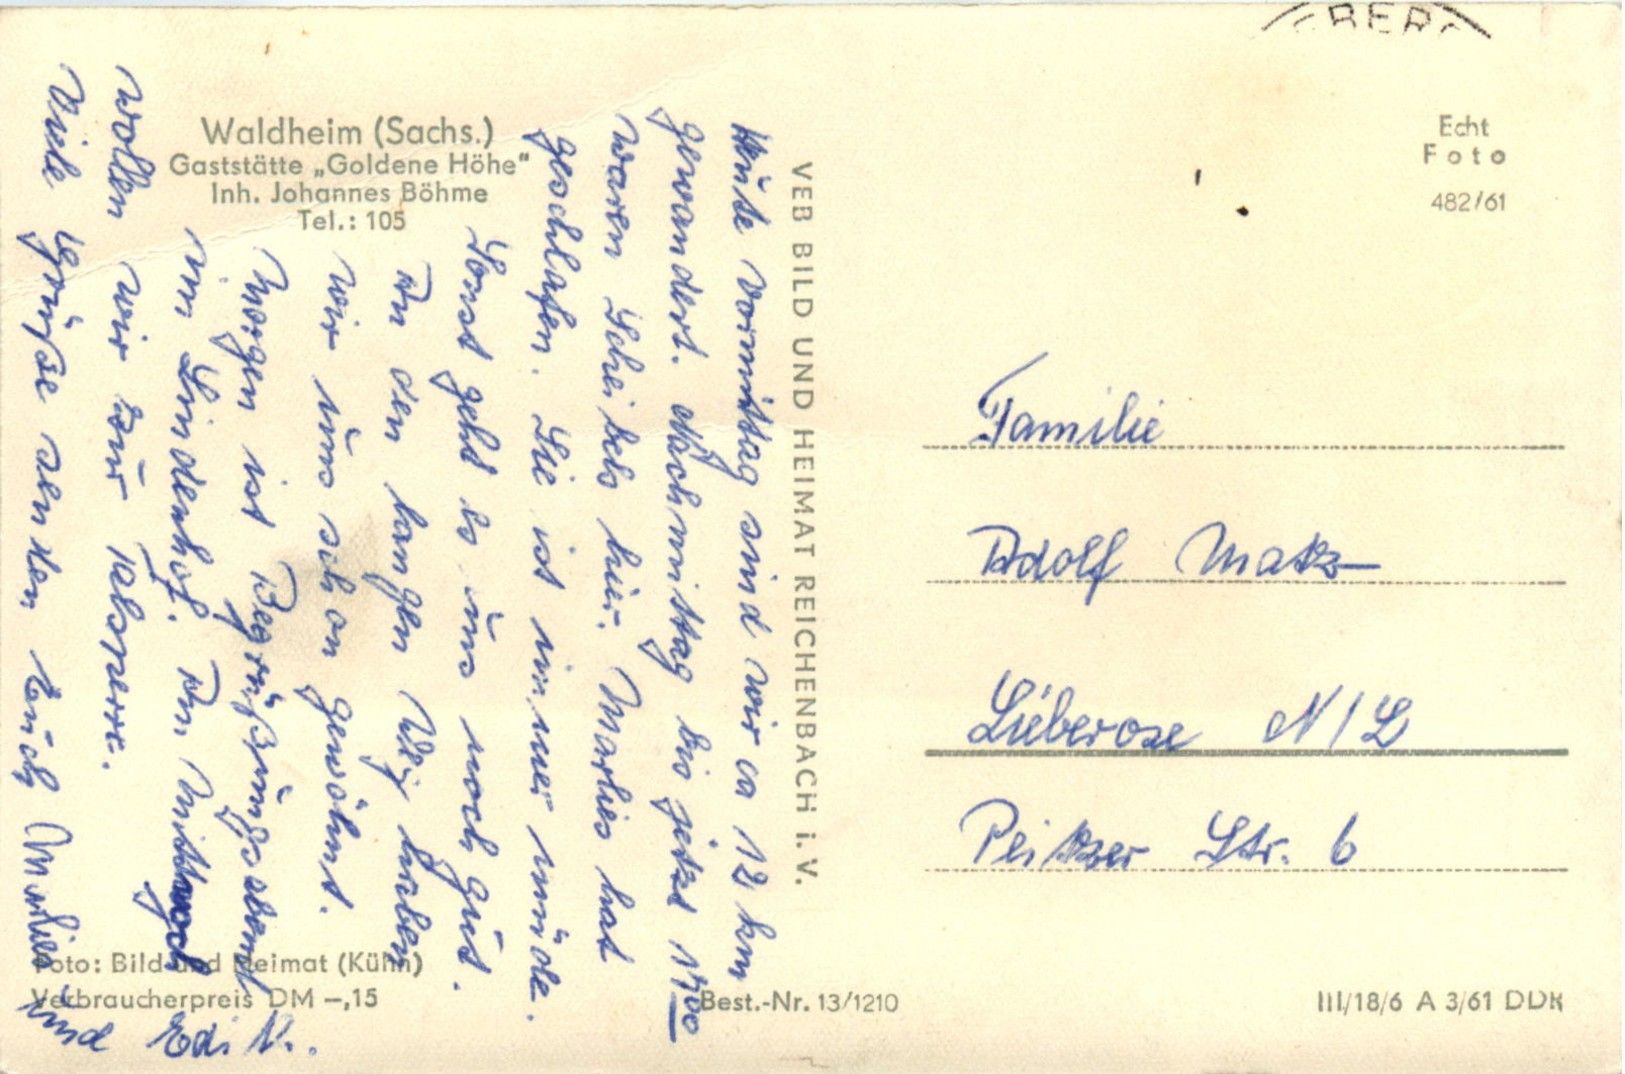 Waldheim (Sachs.)
Gaststätte „Goldene Höhe"
Inh. Johannes Böhme
Tel.: 105
Heute vormittag sind wir ca 12 km
gewandert. Nachmittag bis jetzt 1700
waren Scheibels hier. Marlies hat
geschlafen. Sie ist immer müde.
Sonst geht es uns noch gut.
An den langen Weg haben
wir uns schon gewöhnt.
Morgen ist Begrüßungsabend
im Lindenhof. Am Mittwoch
wollen wir zur Talsperre.
Viele Grüße senden Euch Marlies
und Edi N..
VEB BILD UND HEIMAT REICHENBACH i. V.
BERG
Echt
Foto
482/61
Familie
Adolf Matz
Lieberose N/L
Peitzer Str. 6
Foto: Bild und Heimat (Kühn)
Verbraucherpreis DM –,15
Best.-Nr. 13/1210
III/18/6 A 3/61 DDR